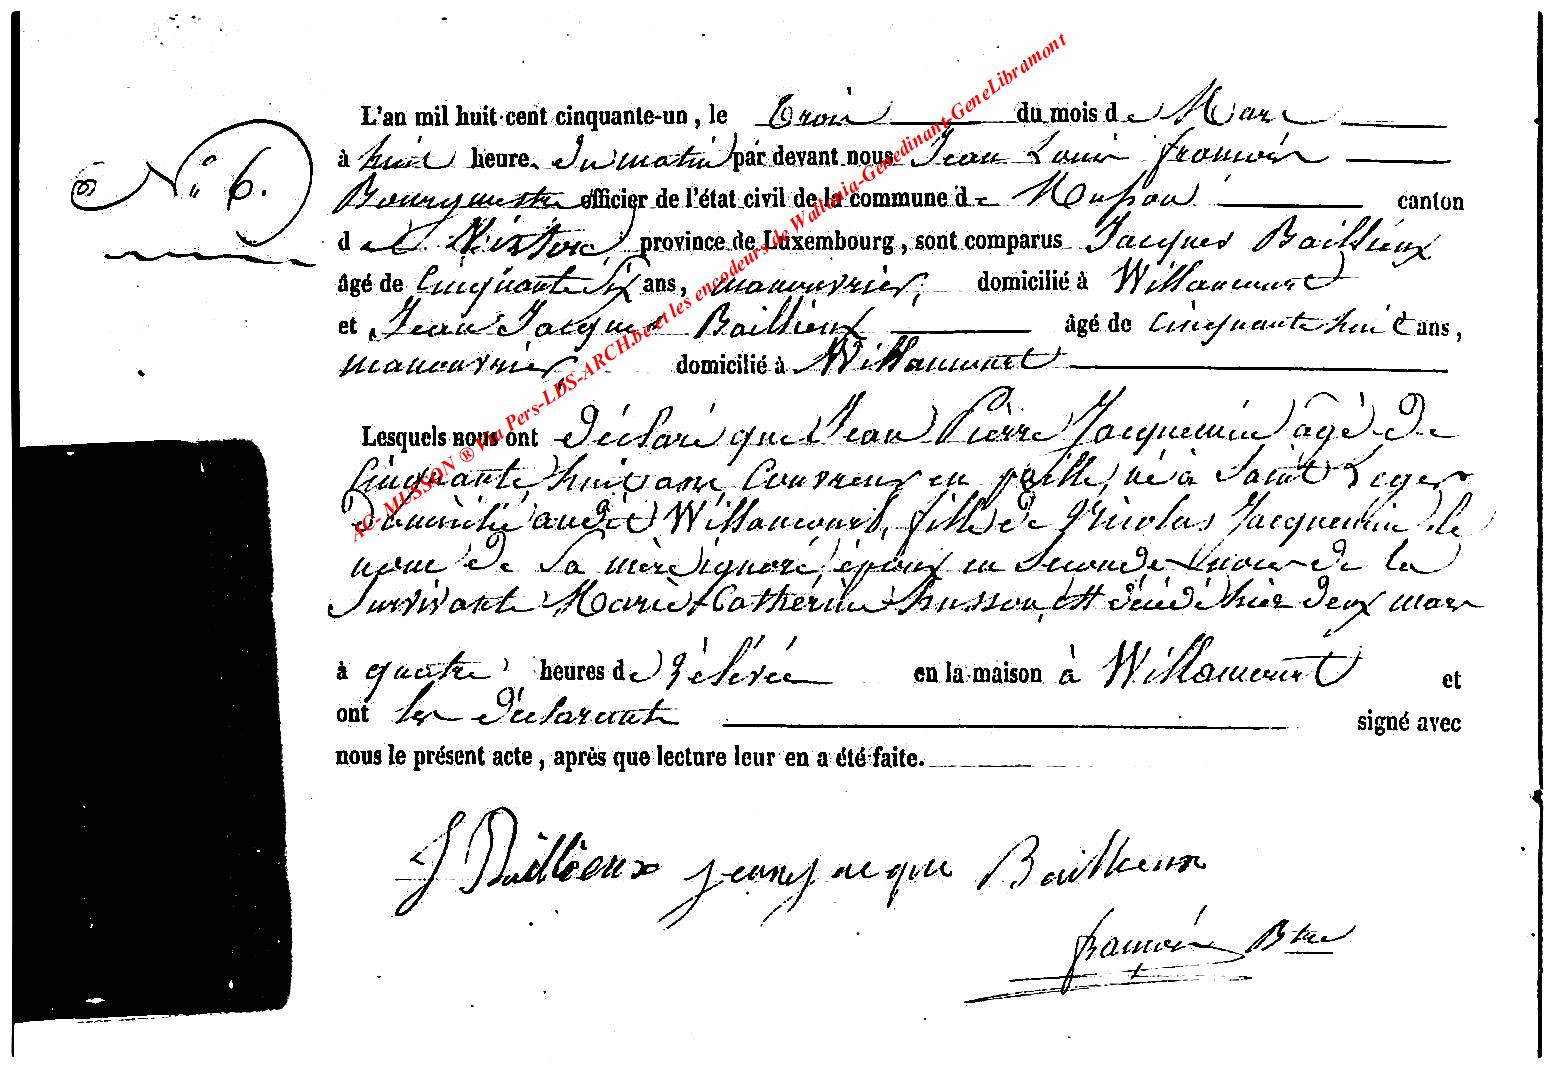 L'an mil huit cent cinquante-un, le trois du mois de Mars
N° 6.
à huit heures du matin par devant nous Jean Louis françois
Bourgmestre officier de l'état civil de la commune de Musson canton
de Virton, province de Luxembourg, sont comparus Jacques Baillieux
âgé de Cinquante six ans, manouvrier, domicilié à Willancourt
et Jean Jacques Baillieux âgé de cinquante huit ans,
manouvrier, domicilié à Willancourt
Lesquels nous ont déclaré que Jean Pierre Jacquemin âgé de
Cinquante huit ans, Couvreur en paille, né à Saint Leger
Domicilié audit Willancourt, fils de Nicolas Jacquemin le
nom de sa mère ignoré, époux en secondes noces de la
Survivante Marie Catherine husson, est décédé hier deux mars
à quatre heures de rélévée en la maison à Willancourt et
ont les déclarants signé avec
nous le présent acte, après que lecture leur en a été faite.
J Baillieux jean jacque Baillieux
françois Btre
AC- MUSSON ® Via Pers-LDS-ARCH.be et les encodeurs de Wallonia-Genedinant-GeneLibramont